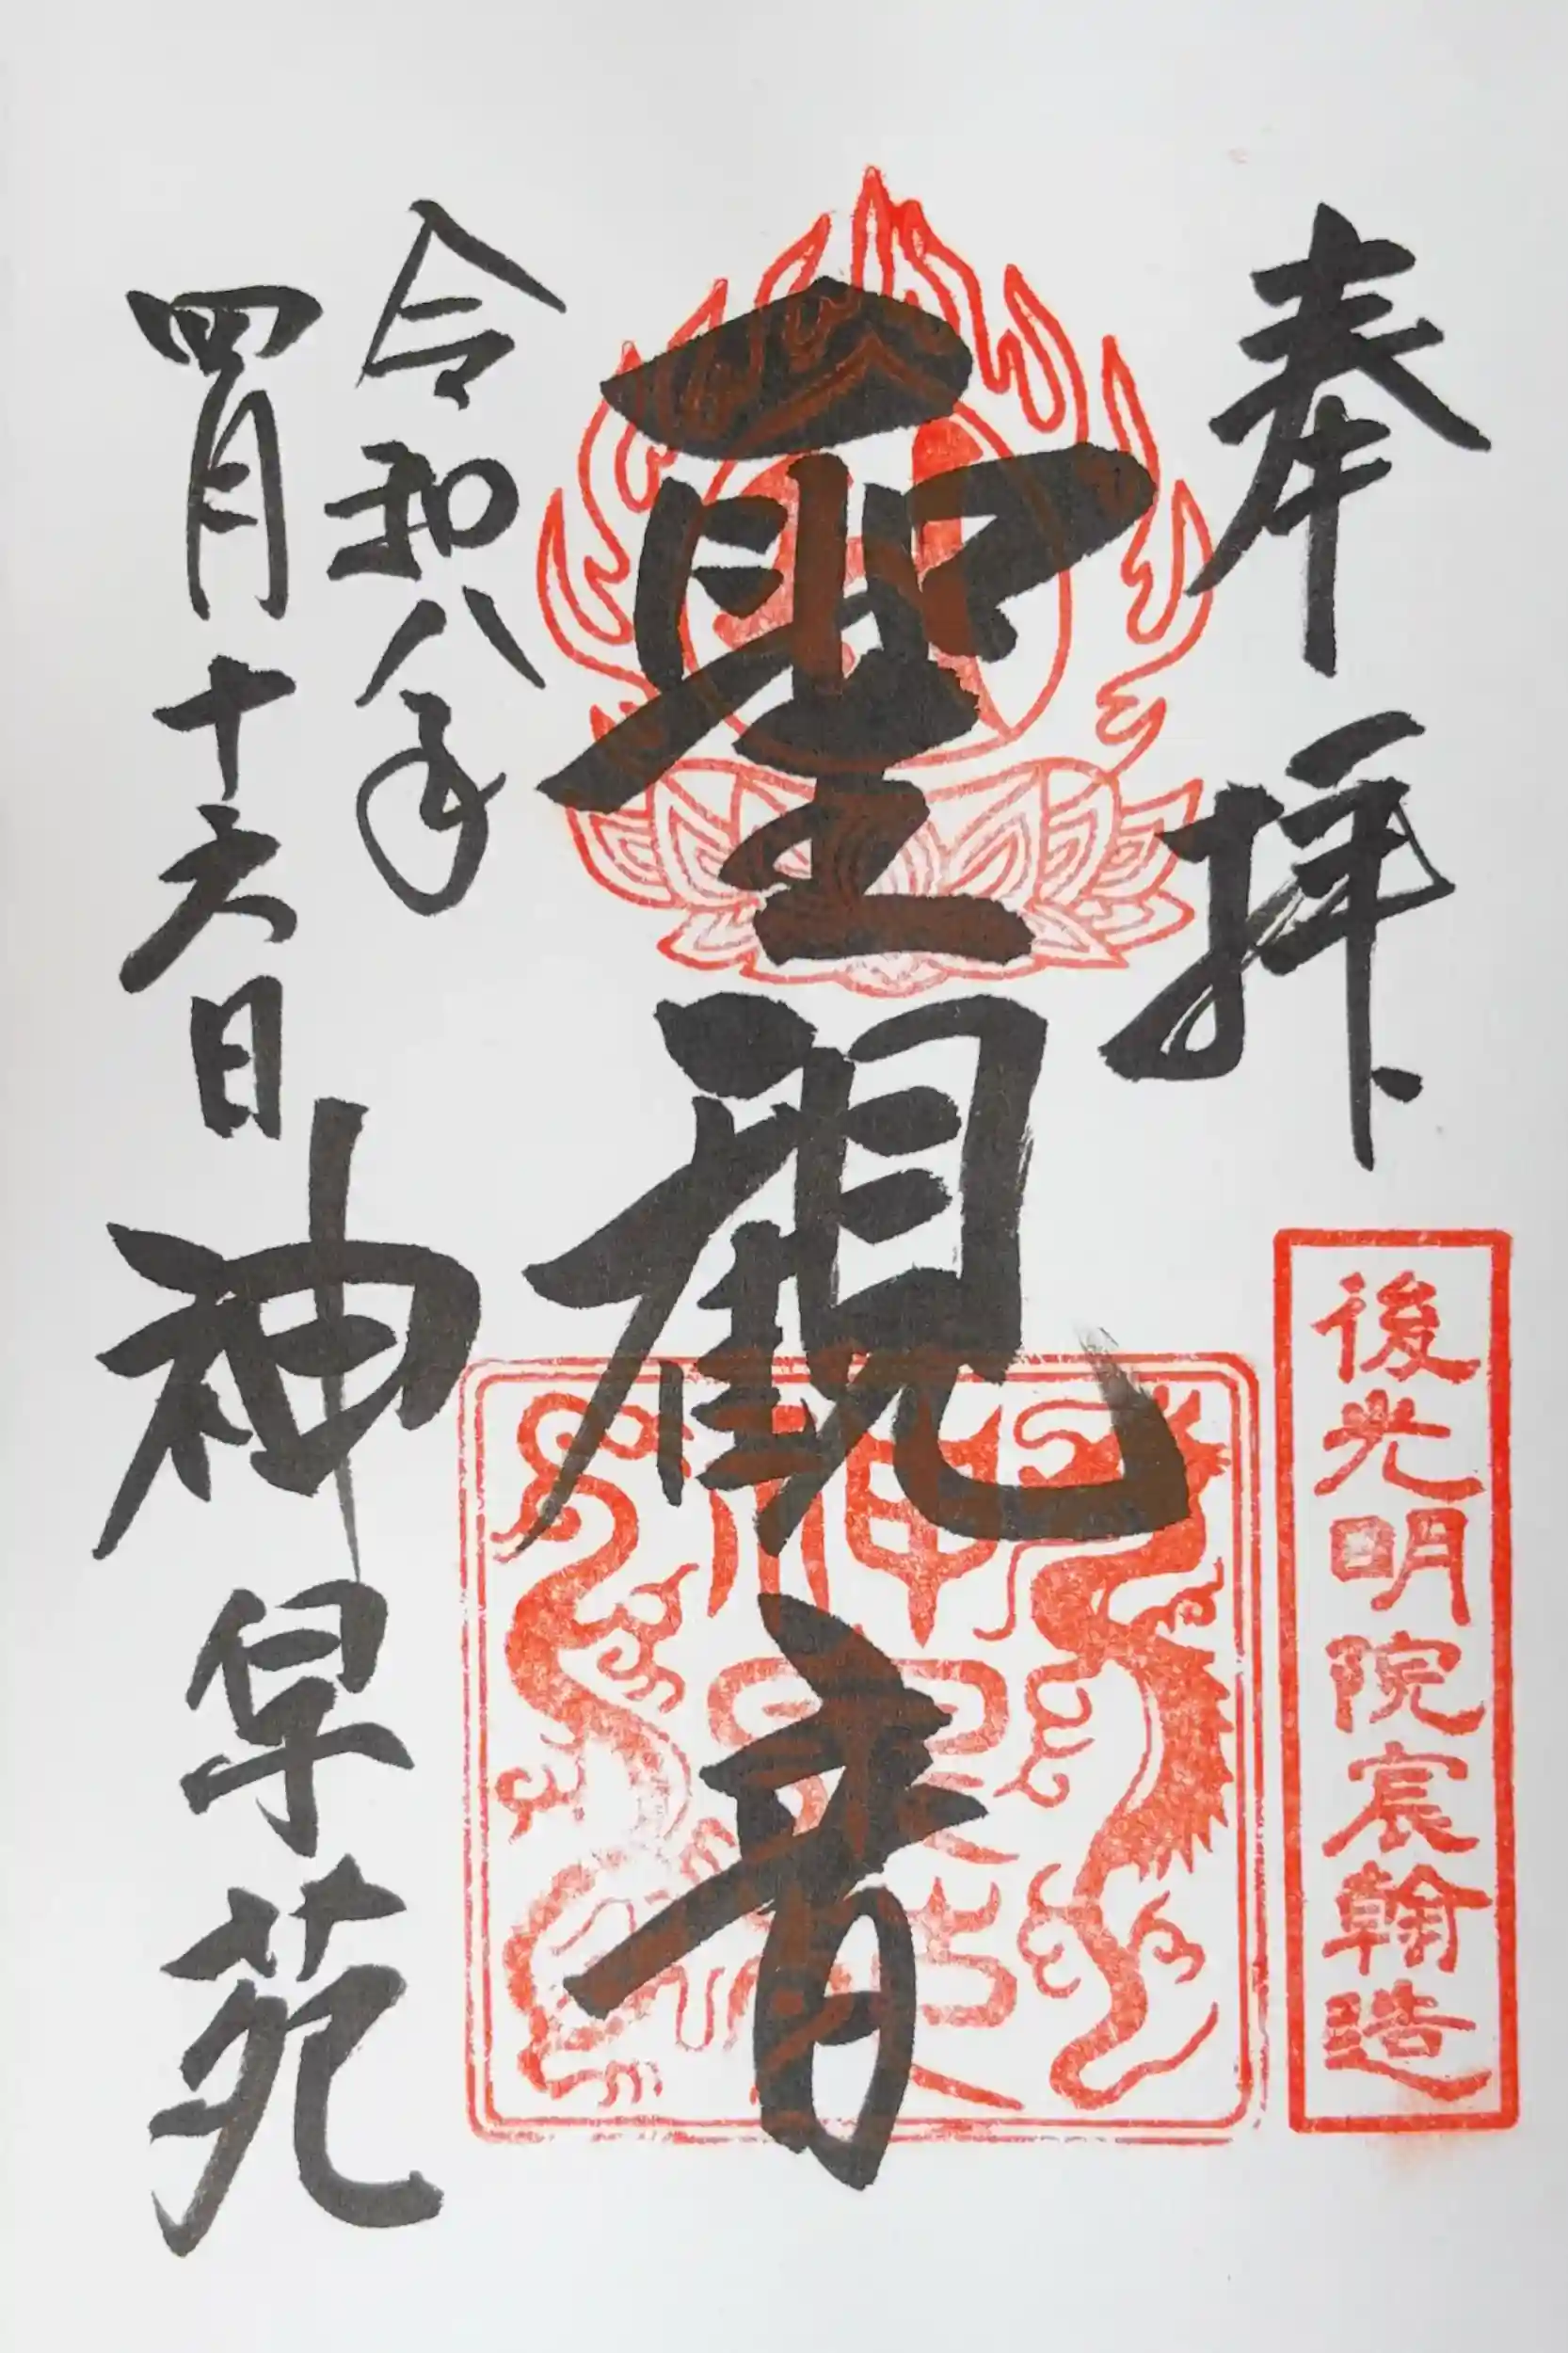 奉拝
後光明院宸翰造
聖観音
令和八年
四月十六日
神皐苑